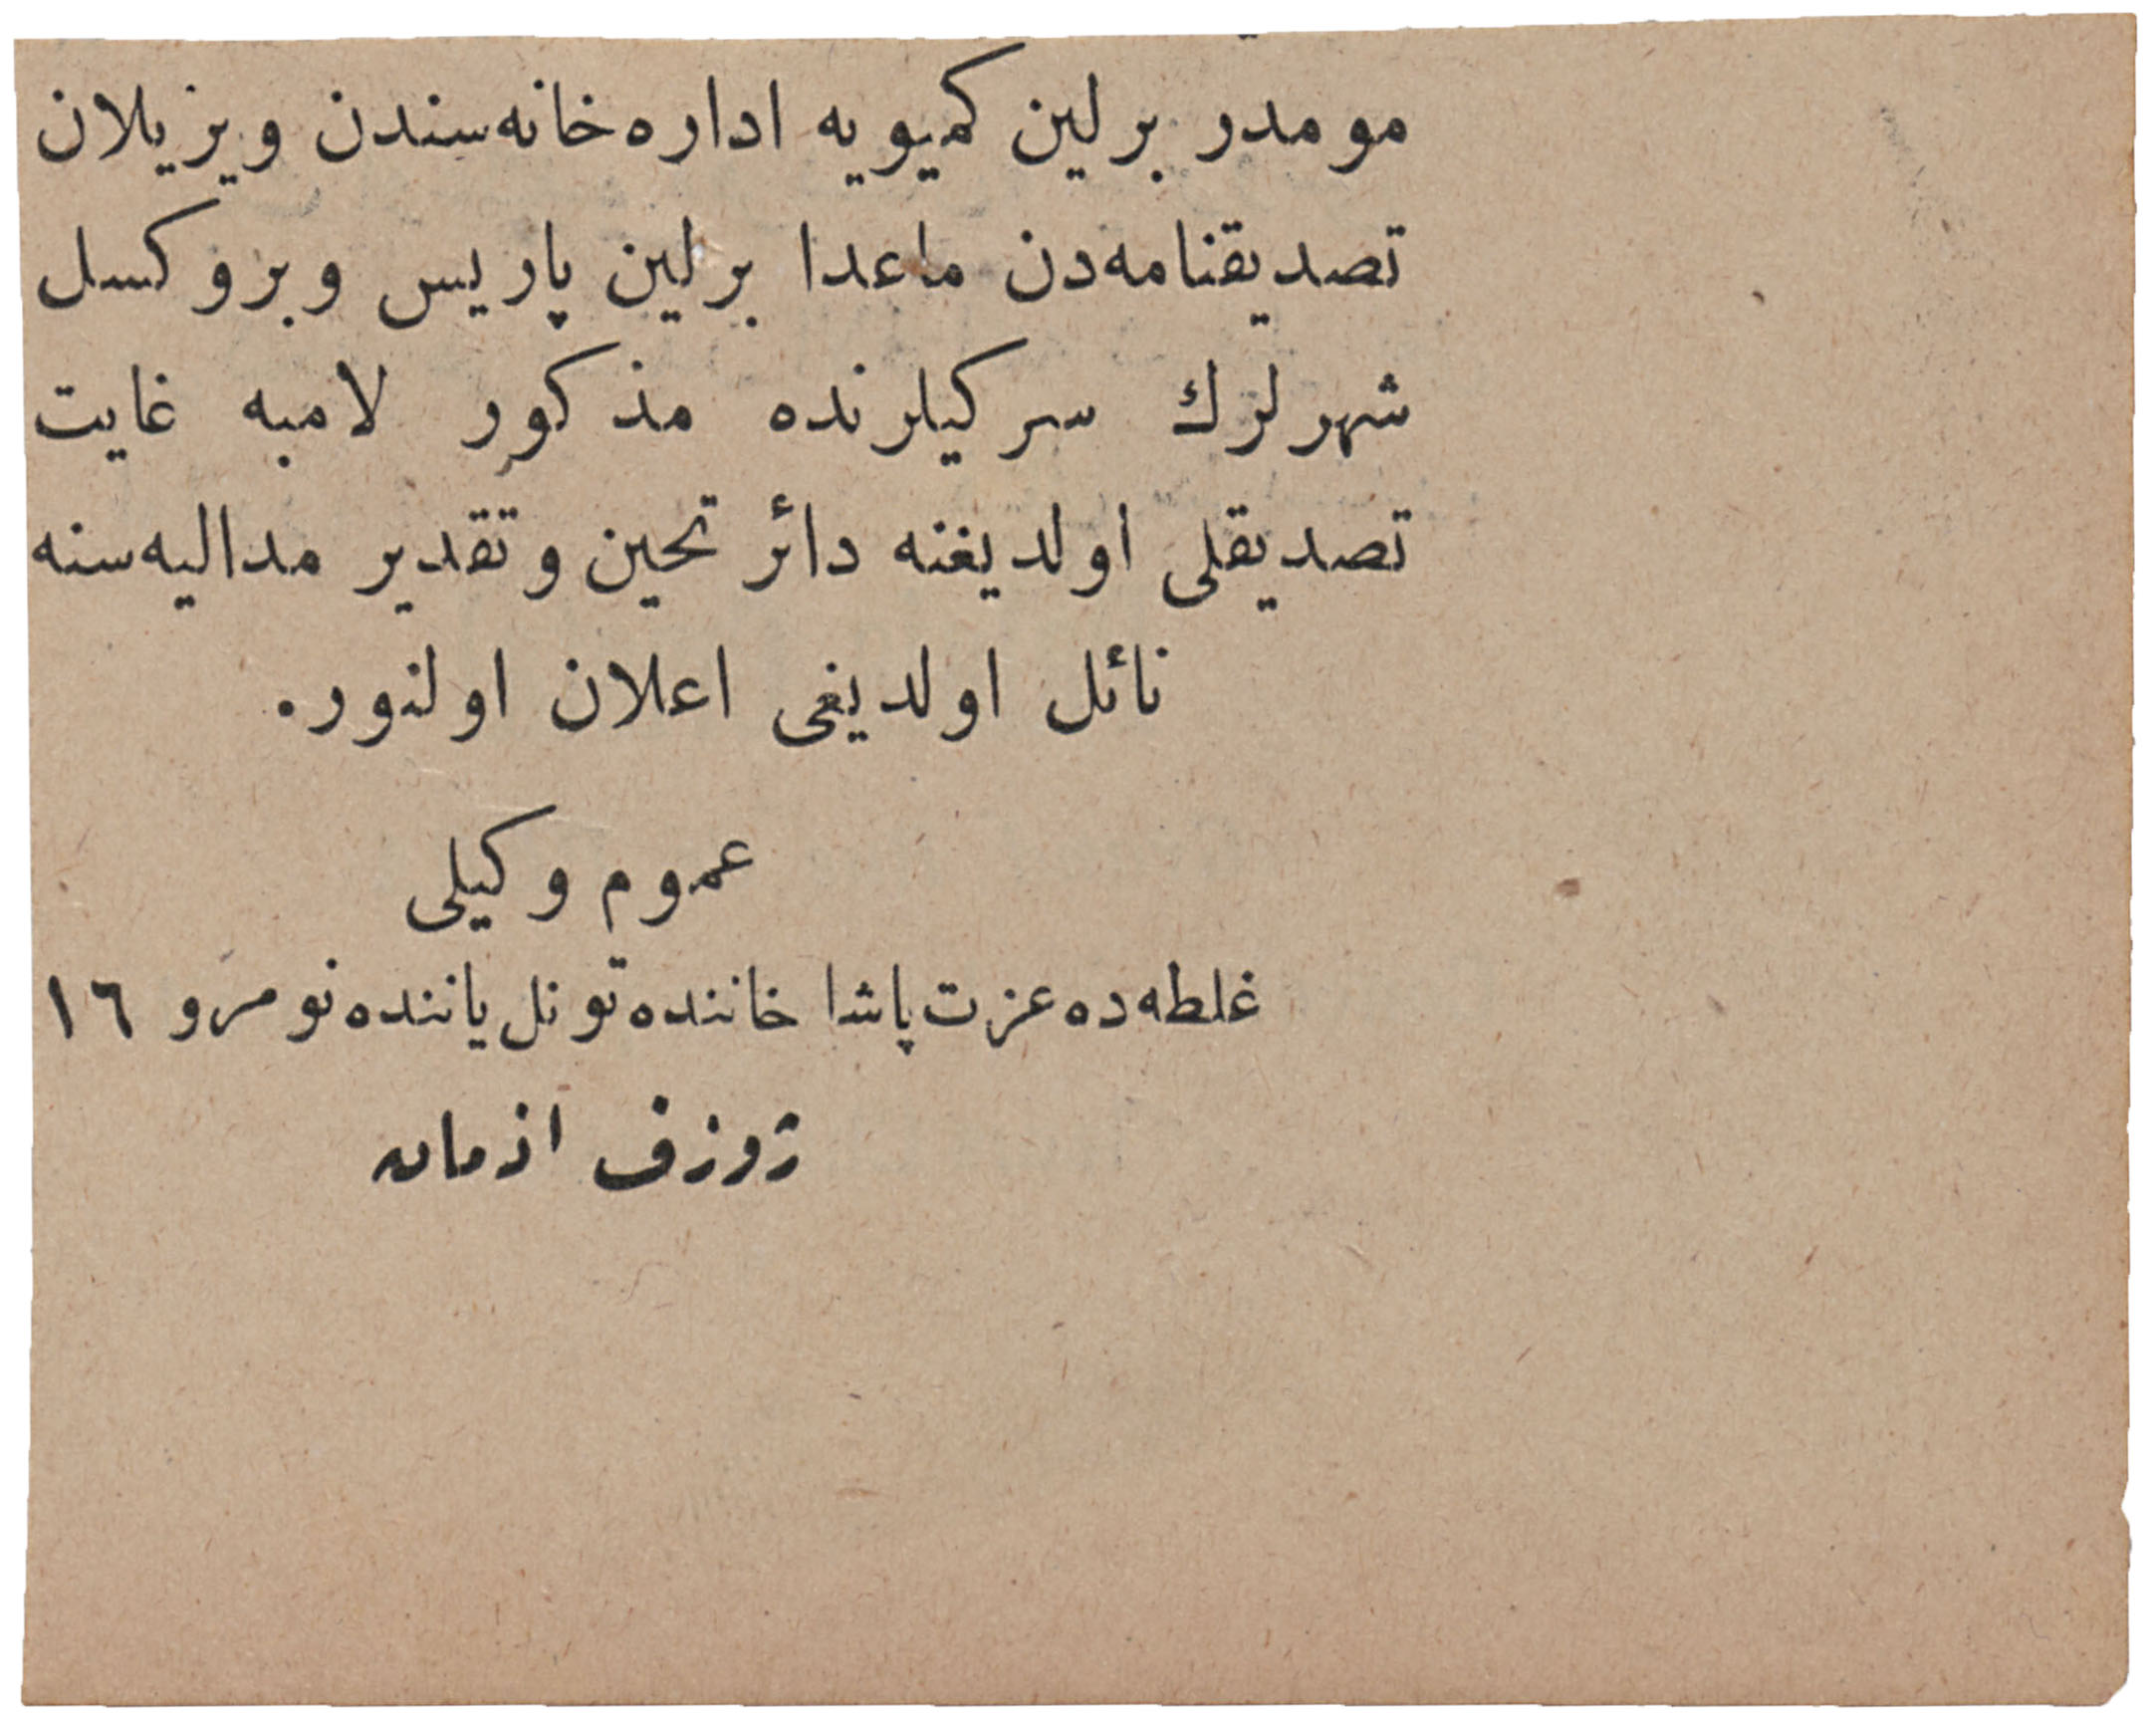 مومدر برلین کمیویه اداره‌خانه‌سندن ویریلان
تصدیقنامه‌دن ماعدا برلین پاریس وبروکسل
شهرلرك سرکیلرنده مذکور لامبه غایت
تصدیقلی اولدیغنه دائر تحین وتقدیر مدالیه‌سنه
نائل اولدیغی اعلان اولنور.
عموم وکیلی
غلطه‌ده عزت پاشا خاننده تونل یاننده نومرو ١٦
ژوزف ازمان